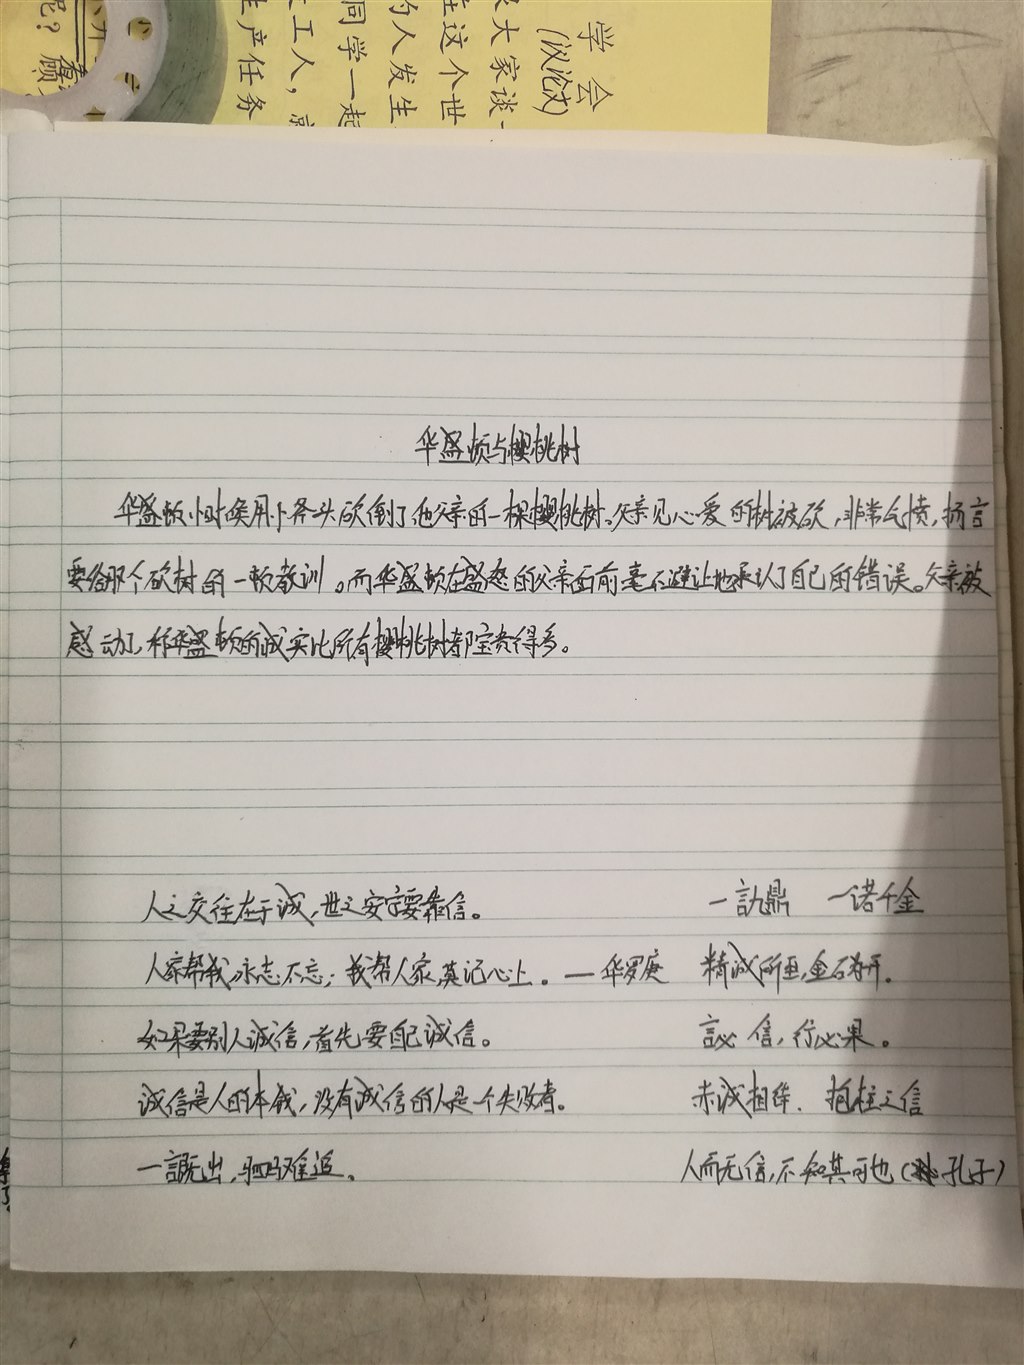 学会
(议论文)
大家谈一
在这个世
的人发生
同学一起
工人，
生产任务
呢？
顾
华盛顿与樱桃树
华盛顿小时候用小斧头砍倒了他父亲的一棵樱桃树。父亲见心爱的树被砍，非常气愤，扬言
要给那个砍树的一顿教训。而华盛顿在盛怒的父亲面前毫不避让地承认了自己的错误。父亲被
感动了，称华盛顿的诚实比所有樱桃树都宝贵得多。
人之交往在于诚，世之安宁要靠信。 一言九鼎 一诺千金
人家帮我，永志不忘；我帮人家，莫记心上。—华罗庚 精诚所至，金石为开。
如果要别人诚信，首先要自己诚信。 言必信，行必果。
诚信是人的本钱，没有诚信的人是一个失败者。 赤诚相待. 抱柱之信
一言既出，驷马难追。 人而无信，不知其可也（孔子）